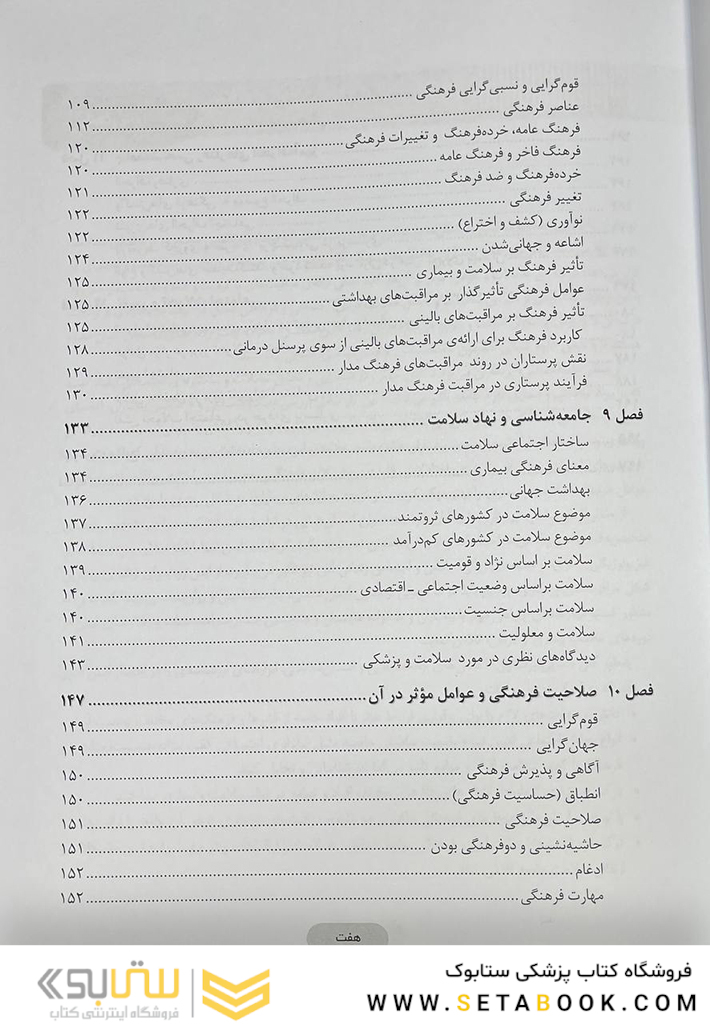 قوم‌گرایی و نسبی‌گرایی فرهنگی ........ ۱۰۹
عناصر فرهنگی ........ ۱۱۲
فرهنگ عامه، خرده‌فرهنگ و تغییرات فرهنگی ........ ۱۲۰
فرهنگ فاخر و فرهنگ عامه ........ ۱۲۰
خرده‌فرهنگ و ضد فرهنگ ........ ۱۲۱
تغییر فرهنگی ........ ۱۲۲
نوآوری (کشف و اختراع) ........ ۱۲۲
اشاعه و جهانی‌شدن ........ ۱۲۴
تأثیر فرهنگ بر سلامت و بیماری ........ ۱۲۵
عوامل فرهنگی تأثیرگذار بر مراقبت‌های بهداشتی ........ ۱۲۵
تأثیر فرهنگ بر مراقبت‌های بالینی ........ ۱۲۵
کاربرد فرهنگ برای ارائه‌ی مراقبت‌های بالینی از سوی پرسنل درمانی ........ ۱۲۸
نقش پرستاران در روند مراقبت‌های فرهنگ مدار ........ ۱۲۹
فرآیند پرستاری در مراقبت فرهنگ مدار ........ ۱۳۰
فصل ۹ جامعه‌شناسی و نهاد سلامت ........ ۱۳۳
ساختار اجتماعی سلامت ........ ۱۳۴
معنای فرهنگی بیماری ........ ۱۳۴
بهداشت جهانی ........ ۱۳۶
موضوع سلامت در کشورهای ثروتمند ........ ۱۳۷
موضوع سلامت در کشورهای کم‌درآمد ........ ۱۳۸
سلامت بر اساس نژاد و قومیت ........ ۱۳۹
سلامت براساس وضعیت اجتماعی ـ اقتصادی ........ ۱۴۰
سلامت براساس جنسیت ........ ۱۴۰
سلامت و معلولیت ........ ۱۴۱
دیدگاه‌های نظری در مورد سلامت و پزشکی ........ ۱۴۳
فصل ۱۰ صلاحیت فرهنگی و عوامل مؤثر در آن ........ ۱۴۷
قوم‌گرایی ........ ۱۴۹
جهان‌گرایی ........ ۱۴۹
آگاهی و پذیرش فرهنگی ........ ۱۵۰
انطباق (حساسیت فرهنگی) ........ ۱۵۰
صلاحیت فرهنگی ........ ۱۵۱
حاشیه‌نشینی و دوفرهنگی بودن ........ ۱۵۱
ادغام ........ ۱۵۲
مهارت فرهنگی ........ ۱۵۲
هفت
فروشگاه کتاب پزشکی ستابوک
WWW.SETABOOK.COM
ستابوک
فروشگاه اینترنتی کتاب